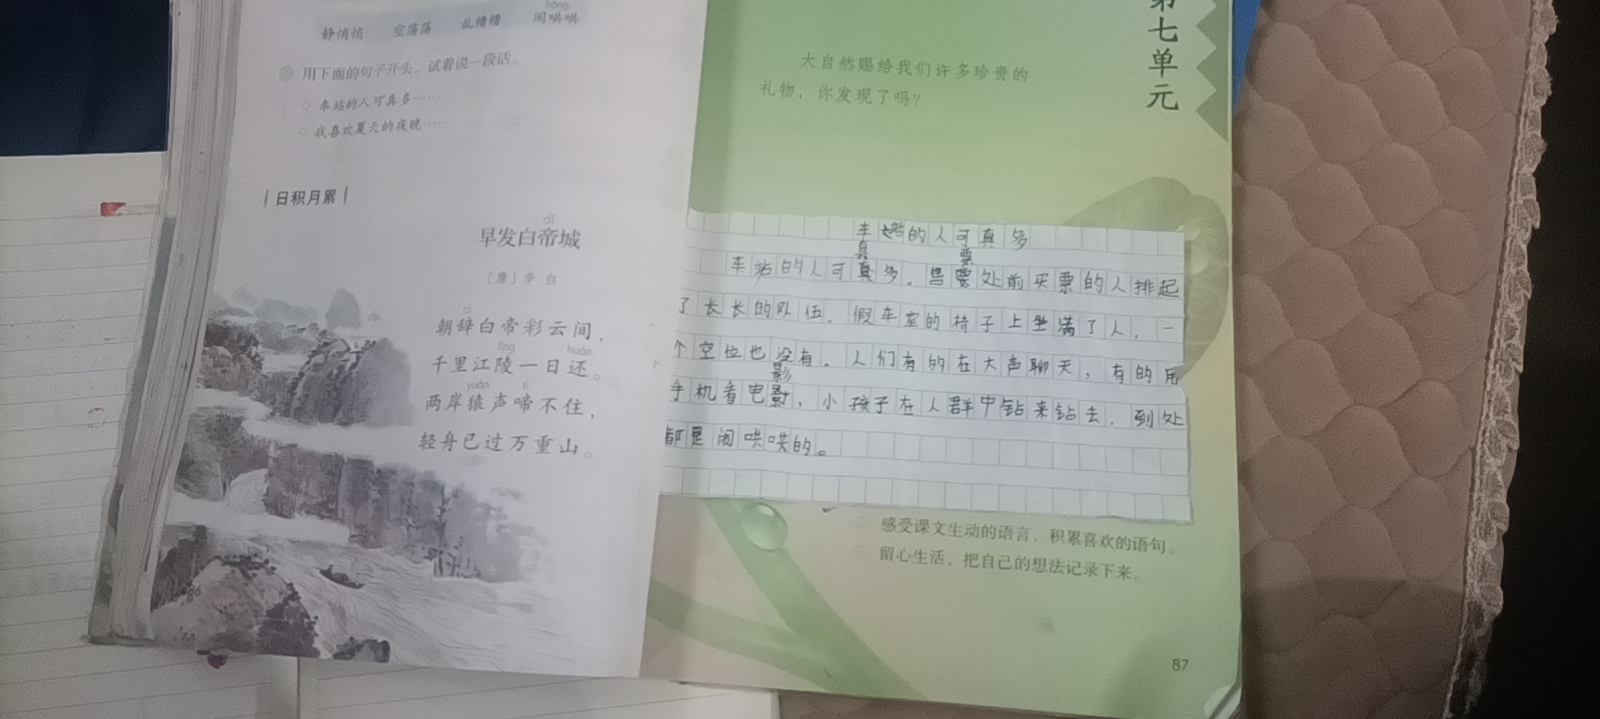 hōng
静悄悄 空荡荡 乱糟糟 闹哄哄
用下面的句子开头，试着说一段话。
○ 车站的人可真多……
○ 我喜欢夏天的夜晚……
日积月累
dì
早发白帝城
［唐］李白
cí
朝辞白帝彩云间，
líng huán
千里江陵一日还。
yuán tí
两岸猿声啼不住，
轻舟已过万重山。
86
第七单元
大自然赐给我们许多珍贵的
礼物，你发现了吗？
车站的人可真多
真 票
车站的人可真多。售票处前买票的人排起
了长长的队伍。假车室的椅子上坐满了人，一
个空位也没有。人们有的在大声聊天，有的用
影
手机看电影，小孩子在人群中钻来钻去，到处
都是闹哄哄的。
感受课文生动的语言，积累喜欢的语句。
留心生活，把自己的想法记录下来。
87